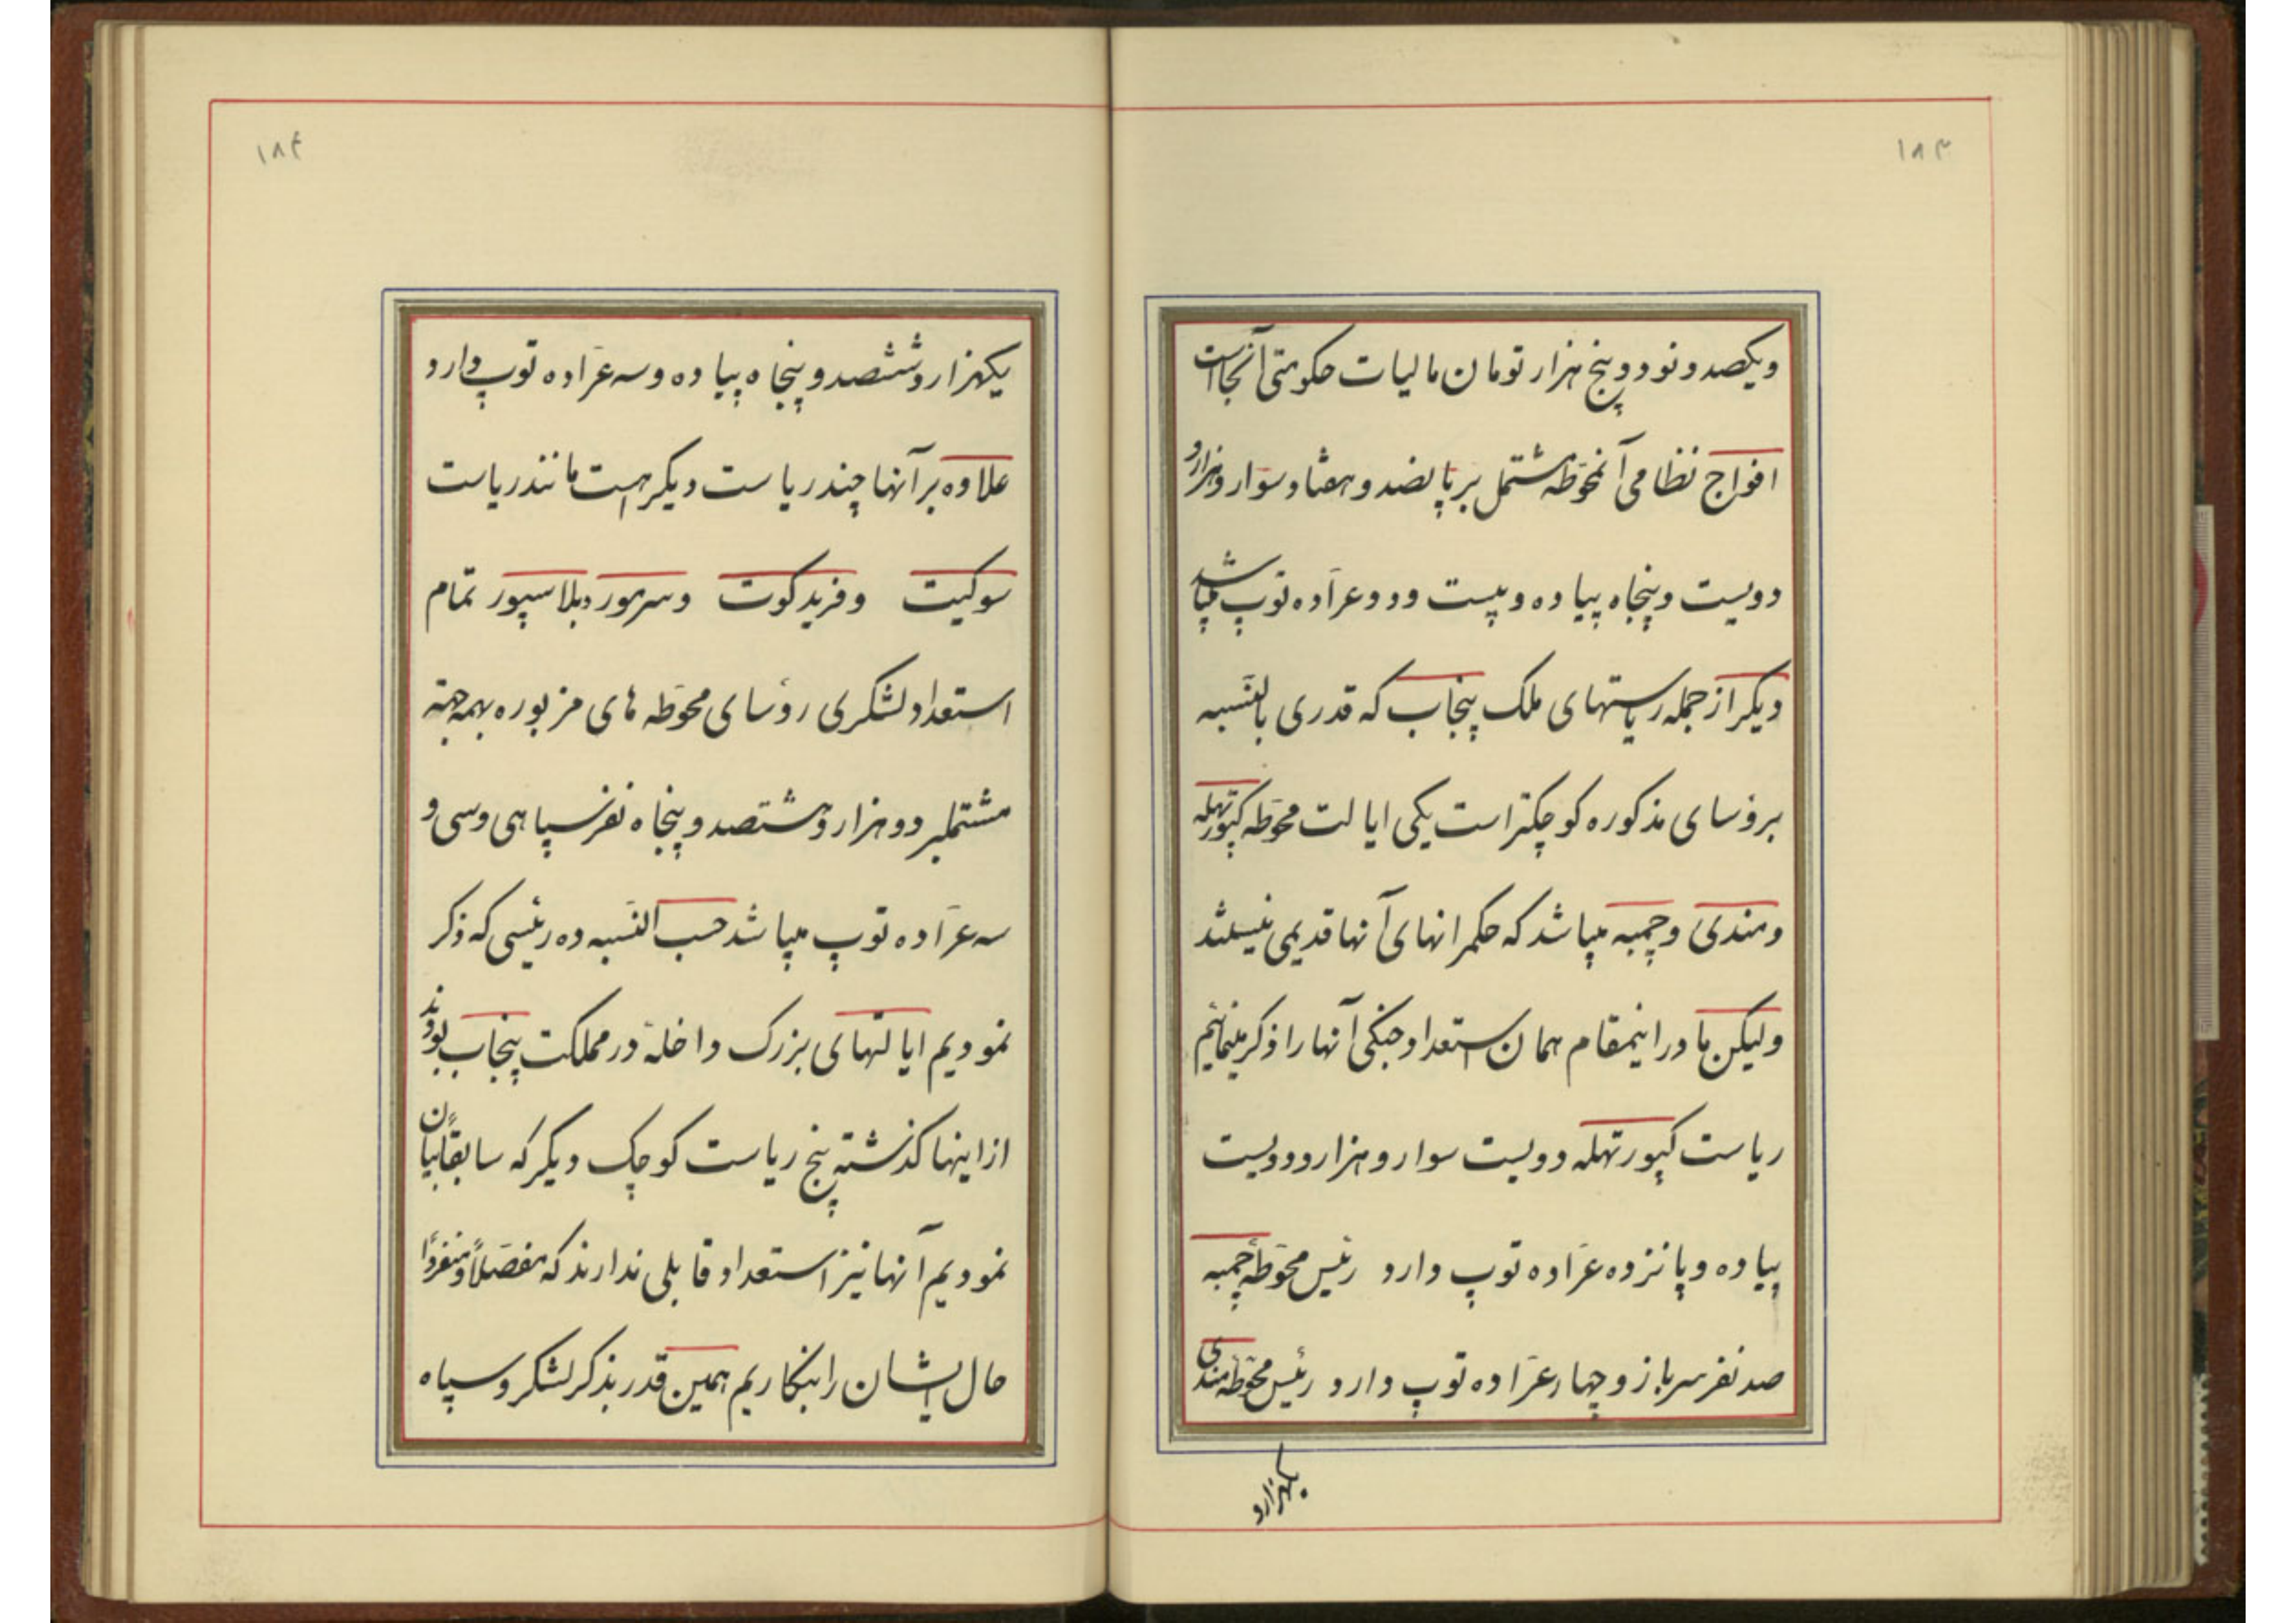 ۱۸۳
ویکصد و نود و پنج هزار تومان مالیات حکومتی آنجا است
افواج نظامی آنمحوّطه مشتمل بر پانصد و هفتاد سوار و هزار و
دویست و پنجاه پیاده و بیست و دو عرّاده توپ میباشد
دیگر از جمله ریاستهای ملک پنجاب که قدری بالنّسبه
برؤسای مذکوره کوچکتر است یکی ایالت محوّطه کپورتهله
و مندی و چمبه میباشد که حکمرانهای آنها قدیمی نیستند
ولیکن ما در اینمقام همان استعداد جنکی آنها را ذکر مینمائیم
ریاست کپورتهله دویست سوار و هزار و دویست
پیاده و پانزده عرّاده توپ دارد رئیس محوّطه چمبه
صد نفر سرباز و چهار عرّاده توپ دارد رئیس محوّطه مندی
یکهزار و
۱۸۴
یکهزار و ششصد و پنجاه پیاده و سه عرّاده توپ دارد
علاوه بر آنها چند ریاست دیگر هست مانند ریاست
سوکیت و فرید کوت و سرمور و بلاسپور تمام
استعداد لشکری رؤسای محوّطه های مزبوره بهمه جهته
مشتملبر دو هزار و هشتصد و پنجاه نفر سپاهی و سی و
سه عرّاده توپ میباشد حسب النّسبه ده رئیسی که ذکر
نمودیم ایالتهای بزرک داخله در مملکت پنجاب بودند
از اینها کذشته پنج ریاست کوچک دیگر که سابقاً بیان
نمودیم آنها نیز استعداد قابلی ندارند که مفصّلاً و منفرداً
حال ایشان را بنکاریم همین قدر بذکر لشکر و سپاه